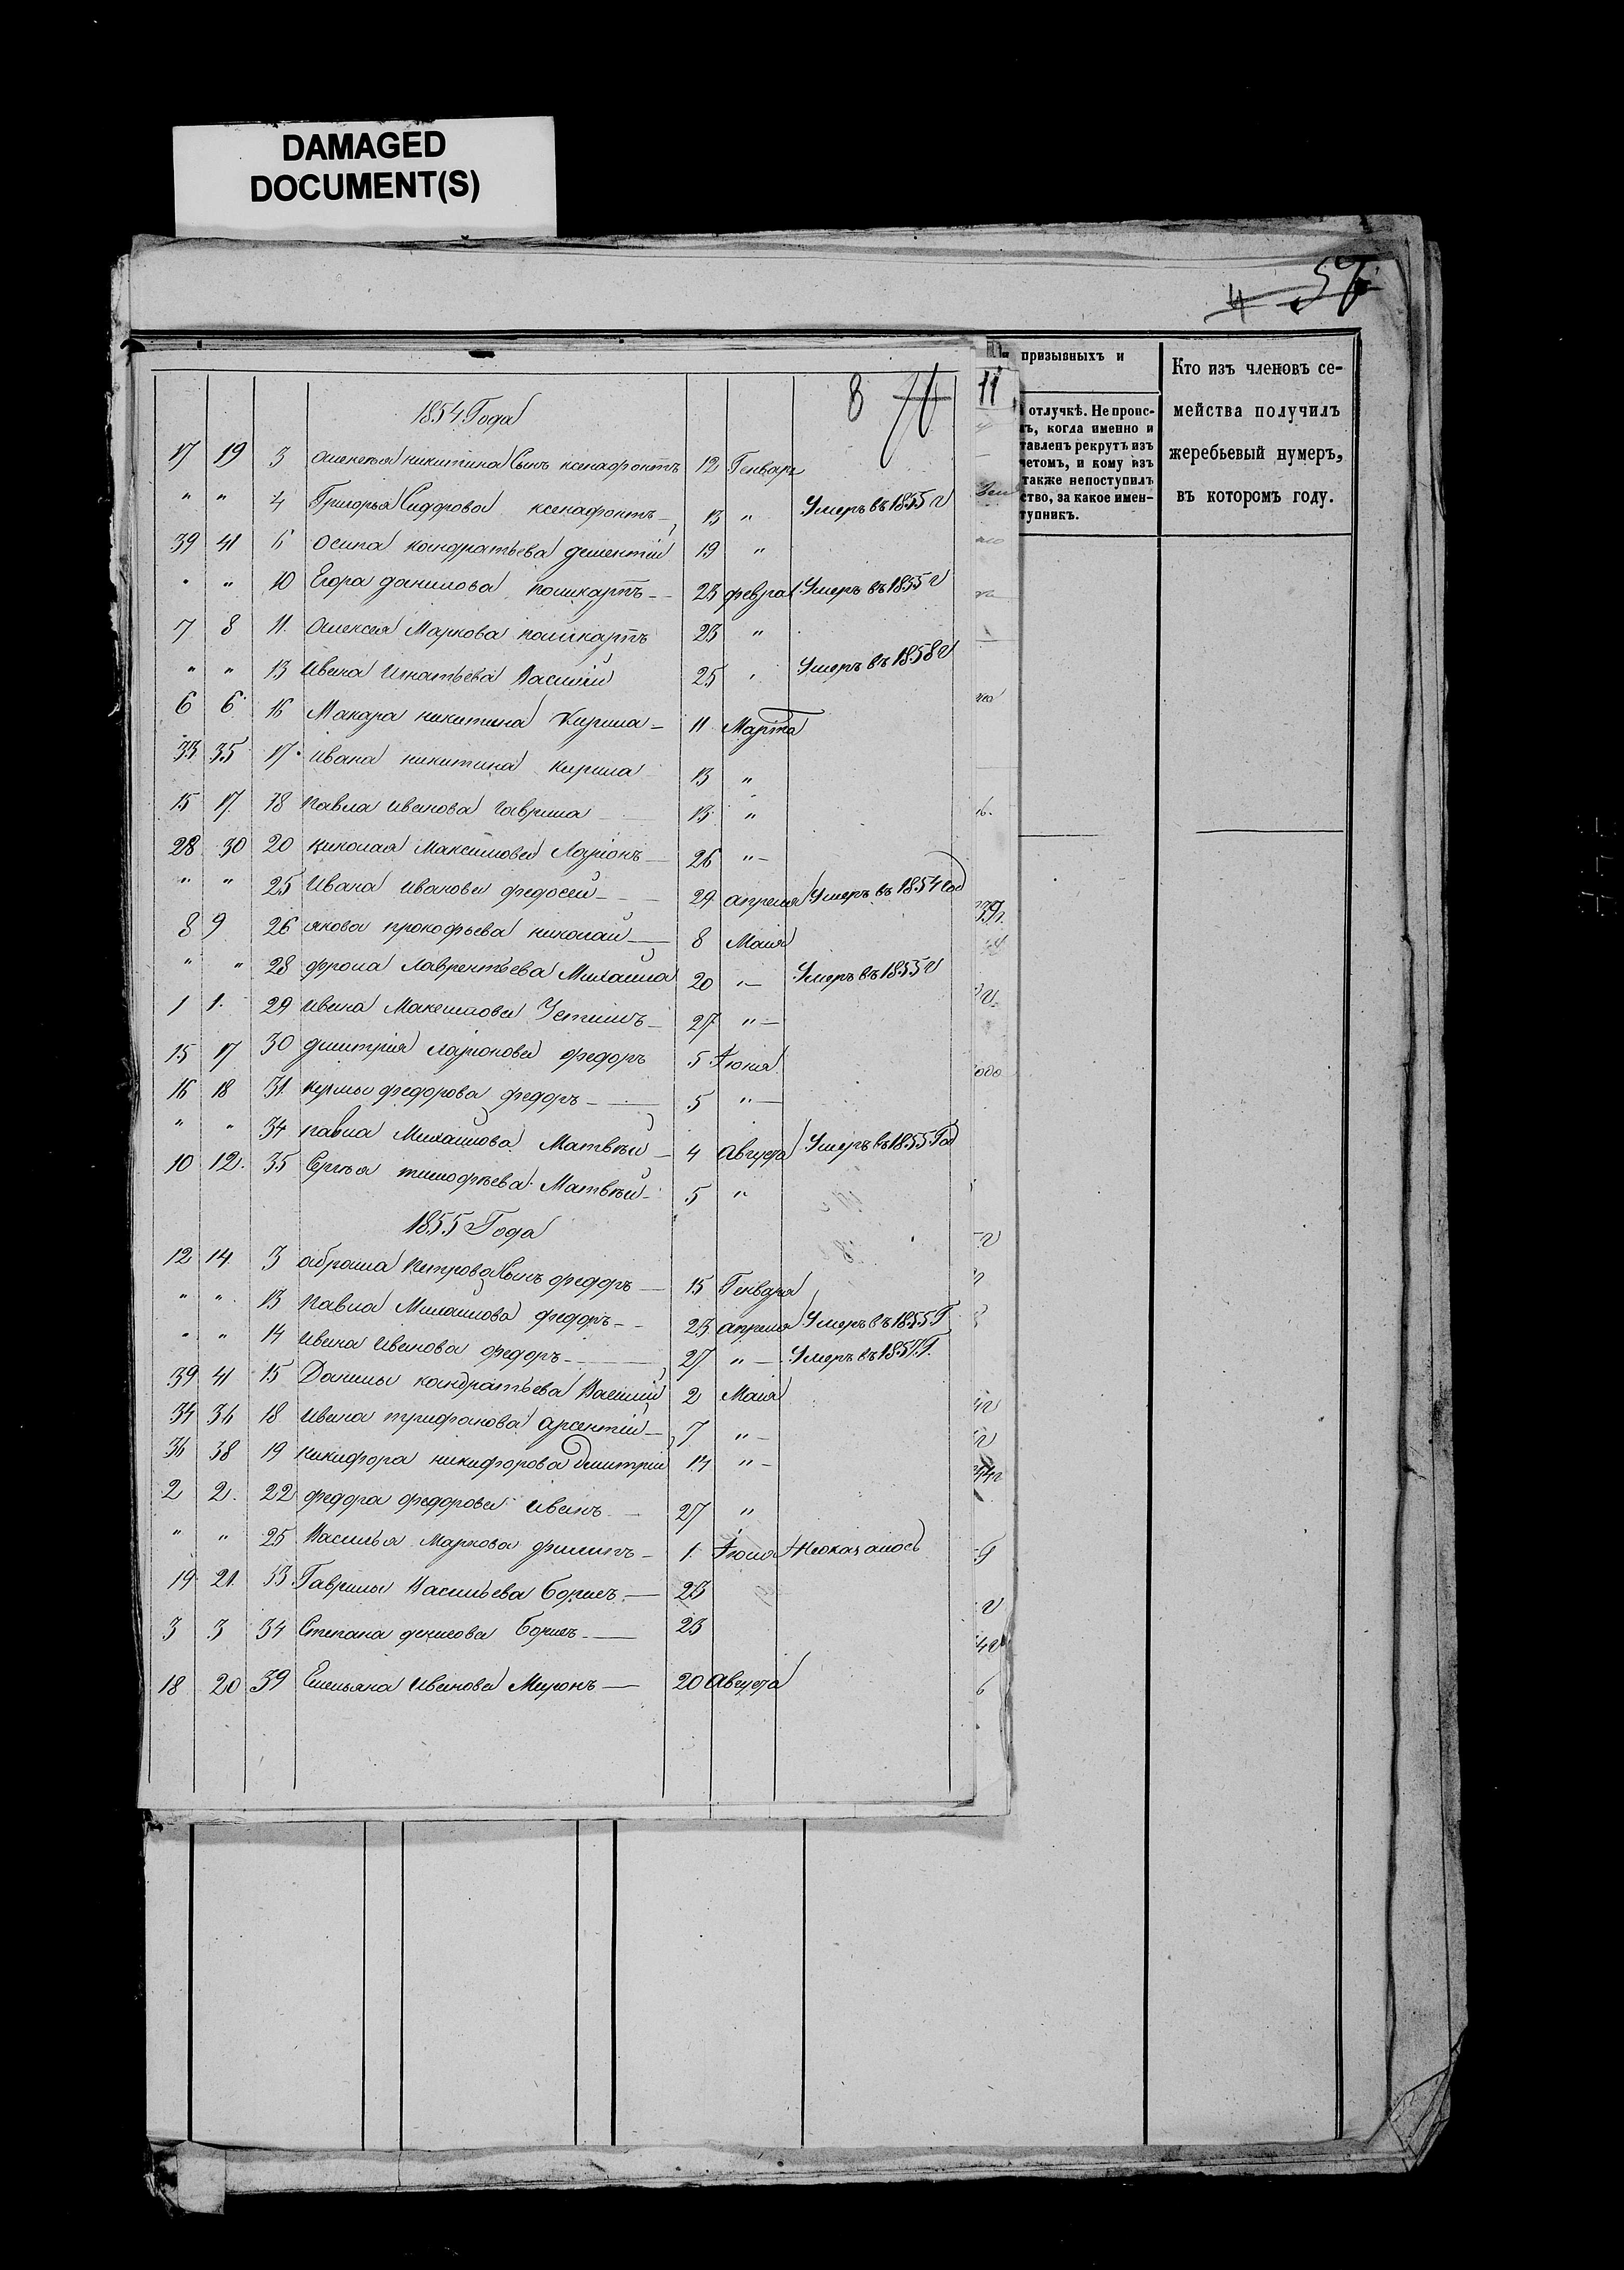 DAMAGED
DOCUMENT(S)
57
призывныхъ и
отлучкѣ. Не проис-
ъ, когда именно и
тавленъ рекрутъ изъ
четомъ, и кому изъ
также непоступилъ
ство, за какое имен-
тупникъ.
Кто изъ членовъ се-
мейства получилъ
жеребьевый нумеръ,
въ которомъ году.
11
8
1854 Года
17 19 3 Алексея никитина Сынъ ксенафонтъ 12 Генваря
" " 4 Григорья Сидорова ксенафонтъ 13 " Умеръ въ 1855 г
39 41 6 осипа кондратьева дементий 19 "
" " 10 Егора данилова поликарпъ 23 феврал Умеръ въ 1855 г
7 8 11 Алексея Маркова поликарпъ 23 "
" " 13 Ивана Игнатьева Василий 25 " Умеръ въ 1858 г
6 6 16 Макара никитина Кирила 11 Марта
33 35 17 Ивана никитина кирила 13 "
15 17 18 павла Иванова гаврила 13 "
28 30 20 николая Максимова Ларионъ 26 "
" " 25 Ивана Иванова федосей 29 апреля Умеръ въ 1854 год
8 9 26 якова прокофьева николай 8 Маия
" " 28 фрола лаврентьева Михаила 20 " Умеръ въ 1855 г
1 1 29 Ивана Максимова Устинъ 27 "
15 17 30 дмитрия ларионова федоръ 5 Июня
16 18 31 кузмы федорова федоръ 5 "
" " 34 павла Михайлова Матвей 4 Августа Умеръ въ 1855 Год
10 12 35 Сергея тимофеева Матвей 5 "
1855 Года
12 14 3 абрама петрова Сынъ федоръ 15 Генваря
" " 13 павла Михайлова федоръ 23 апреля Умеръ въ 1855 Г
" " 14 Ивана Иванова федоръ 27 " Умеръ въ 1857 Г.
39 41 15 Данилы кондратьева Василий 2 Маия
34 36 18 Ивана трифанова арсентий 7 "
36 38 19 никифора никифорова дмитрий 14 "
2 2 22 федора федорова Иванъ 27 "
" " 25 Василья Маркова филипъ 1 Июля Неоказалось
19 21 33 Гаврилы Васильева Борисъ 23
3 3 34 Степана денисова Борисъ 23
18 20 39 Емельяна Иванова Миронъ 20 Августа